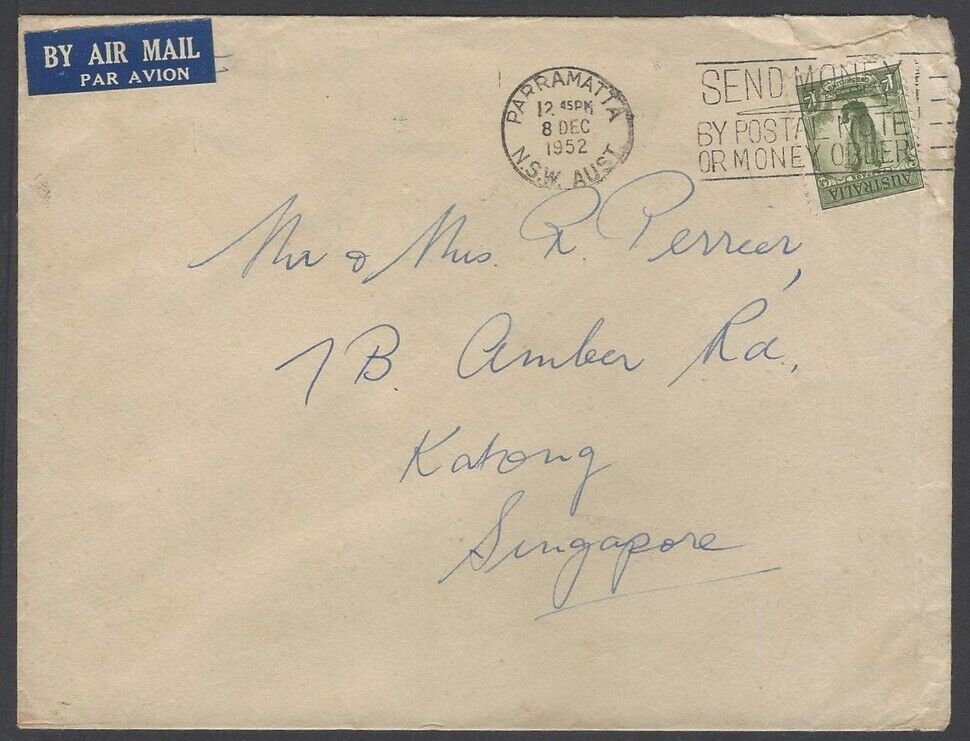 BY AIR MAIL
PAR AVION
PARRAMATTA
12 45PM
8 DEC
1952
N.S.W. AUST
SEND MONEY
BY POSTAL NOTE
OR MONEY ORDER
AUSTRALIA
Mr & Mrs. R. Perrier,
7B. Amber Rd.,
Katong
Singapore